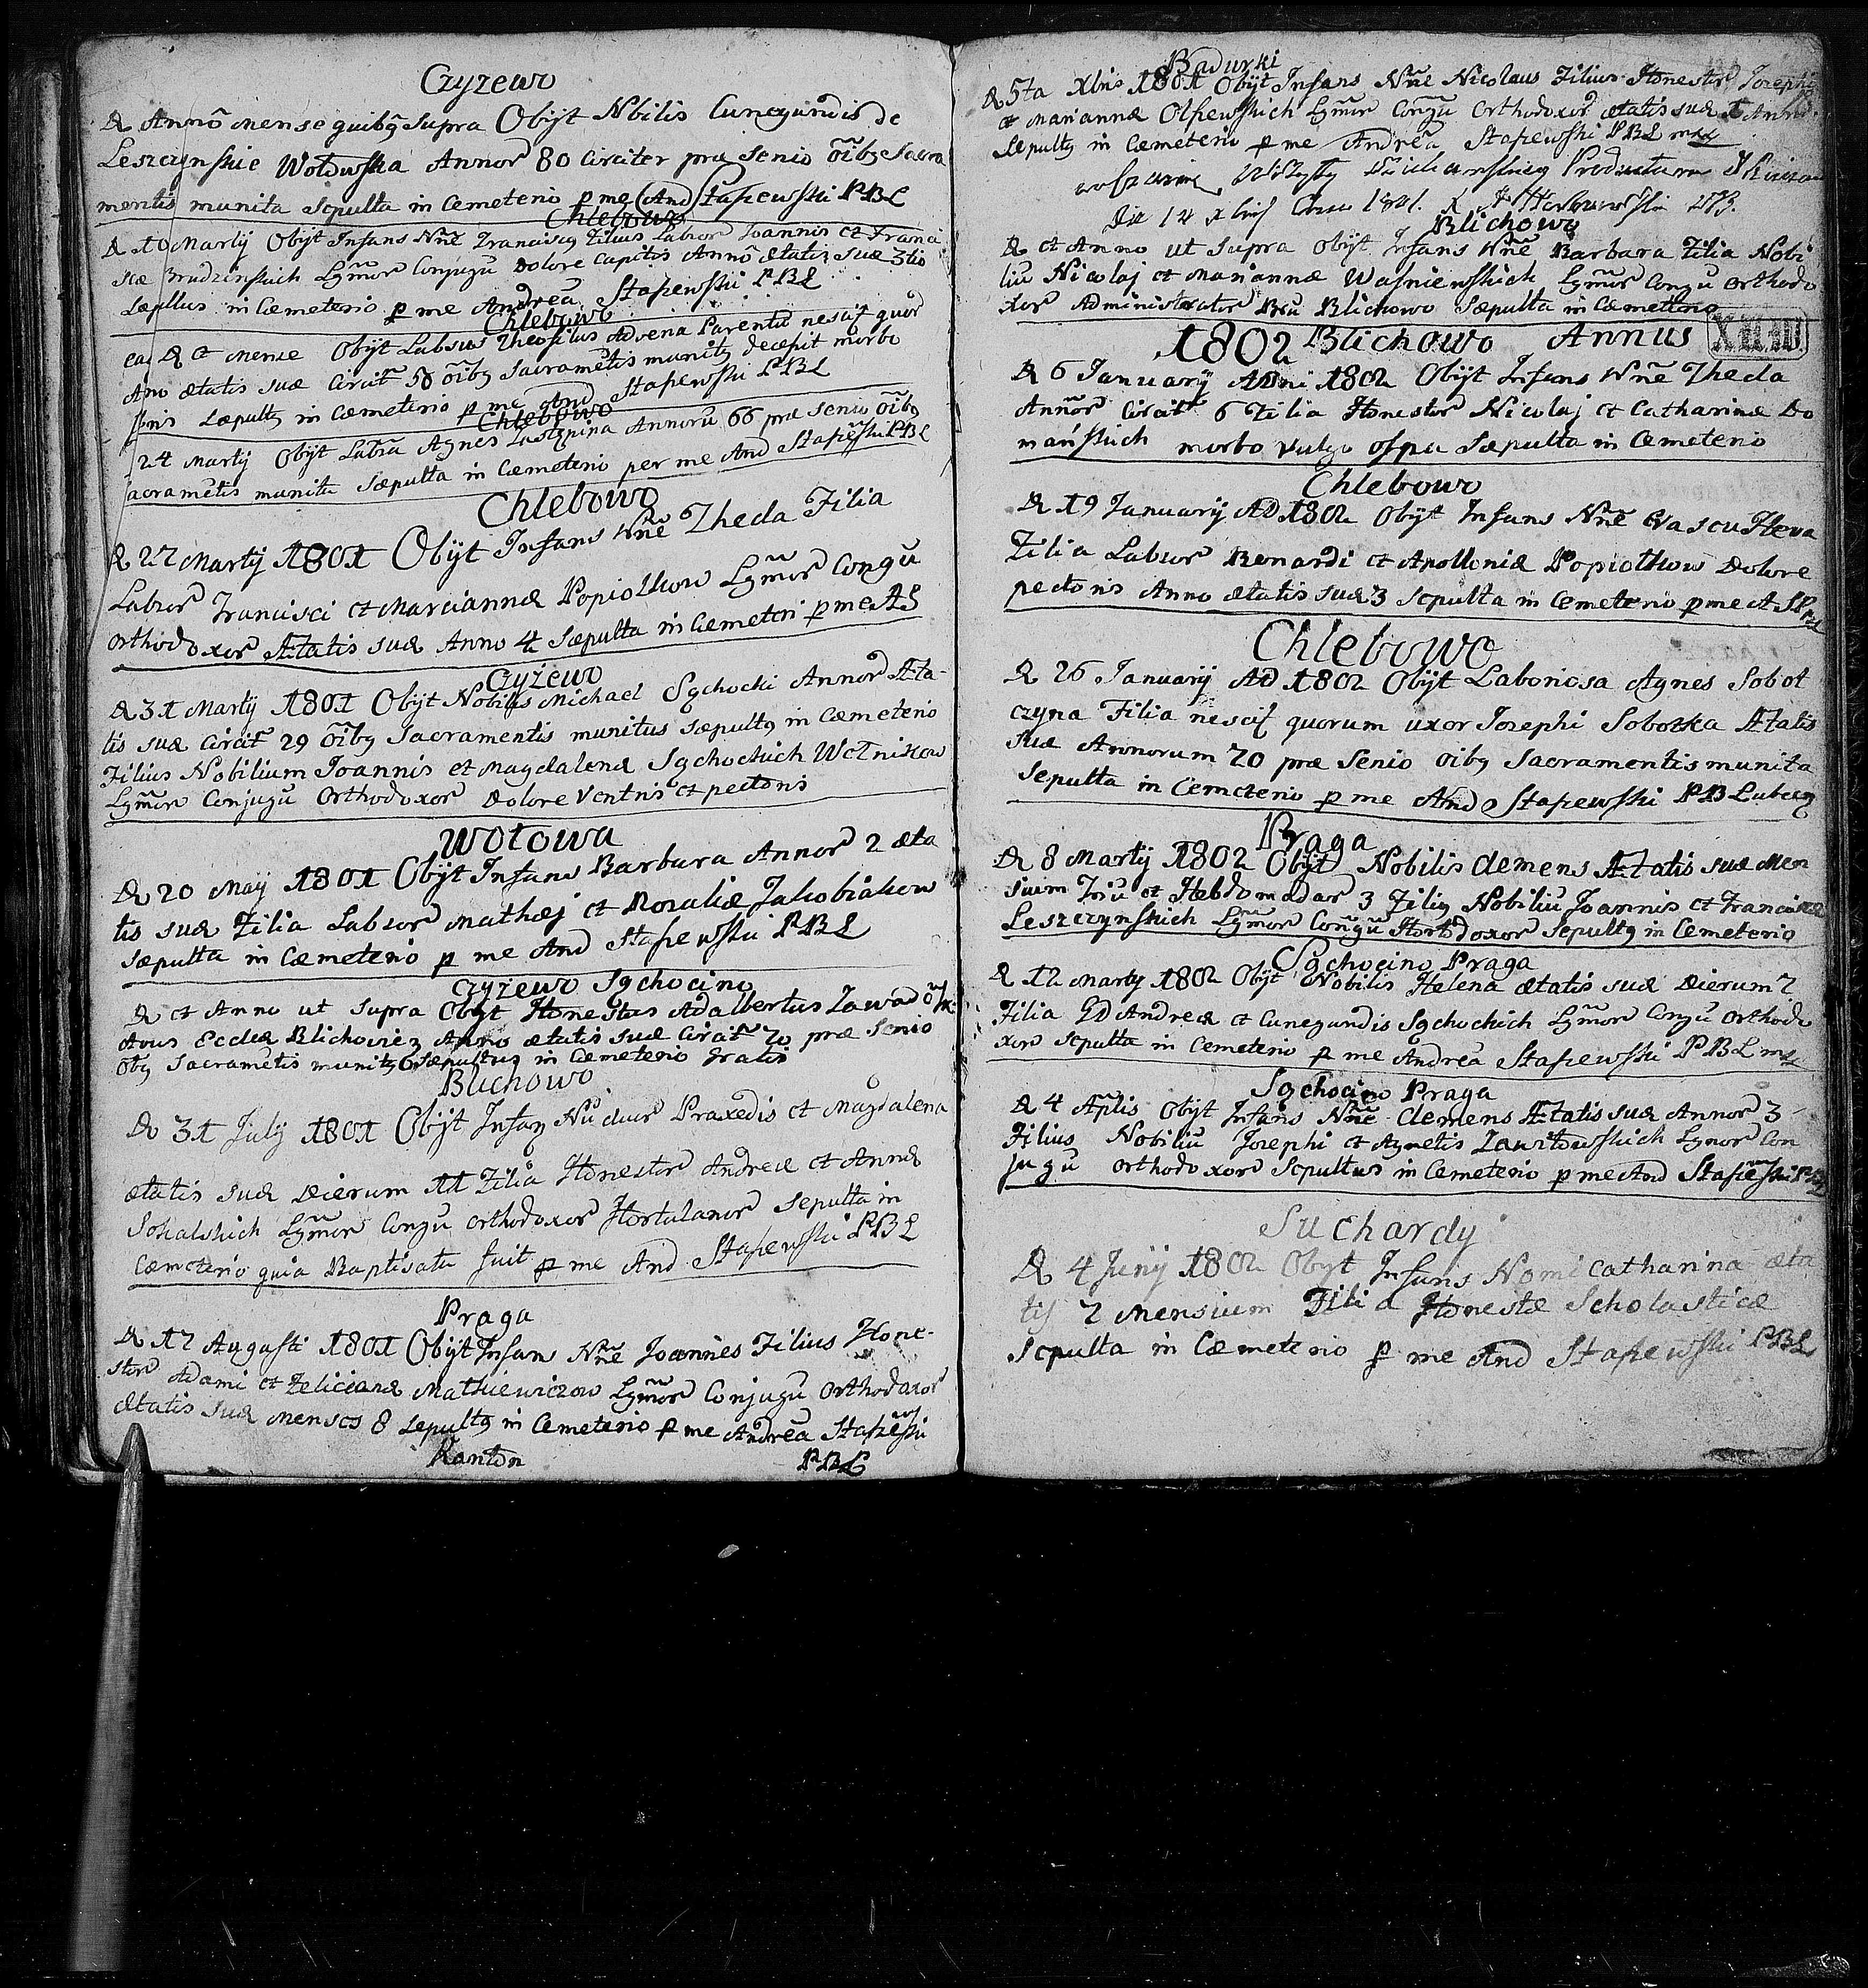 Czyzewo
D Anno mense quibg supra Obyt Nbilis Cunegundis de
Leszczynskie Wołowska Annor 80 Circiter præ Senio oibg Sacra
mentis munita sepulta in Cemeterio p me And Stapewski PBL
Chlebowo
D 10 Martij Obijt Infans Nne Franciscg Filius Labor Joannis et Franci
scæ Brudzinskich Lgmor Conjugu Dolore Capitis Anno ætatis suæ 3tio
sæpultus in Cæmeterio p me Andrea Stapewski PBL
Chlebowo
ead D et Mense Obijt Labsus Theofilus Advena Parentu nescit quor
Ano ætatis suæ Circit 50 oibg Sacrametis munitg decepit morbo
sæpultg in Cæmeterio p me And Stapewski PBL
Chlebowo
24 Martij Obijt Labra Agnes Annoru 66 præ senio oibg
Sacrametis munita sæpulta in Cæmeterio per me And Stapewski PBL
Chlebowo
D 27 Martij 1801 Obijt Infans Nne Theda Filia
Labror Francisci et Mariannæ Popiołkow Lgmor Congu
Orthodoxor Ætatis suæ Anno 4 Sæpulta in Cæmeteri p me AS
Czyżewo
D 31 Martij 1801 Obijt Nobilis Michael Sgchocki Annor Æta-
tis suæ Circit 29 oibg Sacramentis munitus sæpultg in Cæmeterio
Filius Nobilium Joannis et Magdalenæ Sgchockich
Lgmor Conjugu Orthodoxor Dolore Ventris et pectoris
Wołowa
D 20 Maij 1801 Obijt Infans Barbara Annor 2 æta
tis suæ Filia Labror Mathæj et Rosaliæ Jakobiakow
sæpulta in Cæmeterio p me And Stapewski PBL
Czyzewo Sgchocino
D et Anno ut Supra Obyt Honestus Adalbertus Zawad
Avus Eccleæ Blichovieg Anno ætatis suæ Circit 70 præ Senio
oby Sacrametis munitg sæpultus in Cæmeterio gratis
Blichowo
D 31 Julij 1801 Obijt Infas Praxedis et Magdalena
ætatis suæ Dierum 11 Filia Honestor Andreæ et Annæ
Sokalskich Lgmor Congu Orthodoxor Hortulanor Sepulta in
Cæmeterio quia Baptisata fuit p me And Stapewski PBL
Praga
D 17 Augusti 1801 Obijt Infans Nne Joannes Filius Hone-
stor Adami et Felicianæ Mathiewiczow Lgmor Conjugu Orthodoxor
ætatis suæ menses 8 sepultg in Cemeterio p me Andrea Stapewski
Kanton PBL
Badurki
D 5ta Xbris 1801 Obijt Infans Nne Nicolaus Filius Honestor Josephi
et Mariannæ Olszewskich Lgmor Congu Orthodoxor ætatis suæ 1 Anno
Sepultg in Cæmeterio p me Andrea Stapewski PBL mpp
Wizyty Productum
Die 14 Xbris
Blichowo
D et Anno ut supra Obijt Infans Nne Barbara Filia Nobi
liu Nicolaj et Mariannæ Waśniewskich Lgmor Congu Orthodo
xor Administrator Bru Blichowo Sæpulta in Cæmeterio
1802 Blichowo Annus
D 6 Januarij Anni 1802 Obijt Infans Nne Theda
Annor Circit 6 Filia Honestor Nicolaj et Catharinæ Do
mańskich morbo vulgo ospa Sæpulta in Cemeterio
Chlebowo
D 19 Januarij AD 1802 Obijt Infans Nne Eva seu Heva
Filia Labror Bernardi et Apolloniæ Popiołkow Dolore
pectoris Anno ætatis suæ 3 Sepulta in Cemeterio p me A S PBL
Chlebowo
D 26 Januarij AD 1802 Obijt Laboriosa Agnes Sobot
czyna Filia nescit quorum uxor Josephi Sobotka Ætatis
suæ Annorum 70 præ Senio oibg Sacramentis munita
Sepulta in Cemeterio p me And Stapewski PB Lubecg
Praga
D 8 Martij 1802 Obijt Nobilis Clemens Ætatis suæ Men
sium Triu et Hebdomadar 3 Filig Nobiliu Joannis et Franciscæ
Leszczynskich Lgmor Congu Hortodoxor Sepultg in Cemeterio
Sgchocino Praga
D 12 Martij 1802 Obijt Nobilis Helena ætatis suæ Dierum 7
Filia GD Andreæ et Cunegundis Sgchockich Lgmor Congu Orthodo
xor Sepulta in Cemeterio p me Andrea Stapewski PBL mpp
Sgchocino Praga
D 4 Aplis Obijt Infans Nne Clemens Ætatis suæ Annor 3
Filius Nobiliu Josephi et Agnetis Lgmor Con
jugu Orthodoxor Sepultus in Cemeterio p me And Stapewski PBL
Suchardy
D 4 Junij 1802 Obyt Infans Nomi Catharina æta
tis 7 mensium Filia Honestæ Scholasticæ
Sepulta in Cæmeterio p me And Stapewski PBL